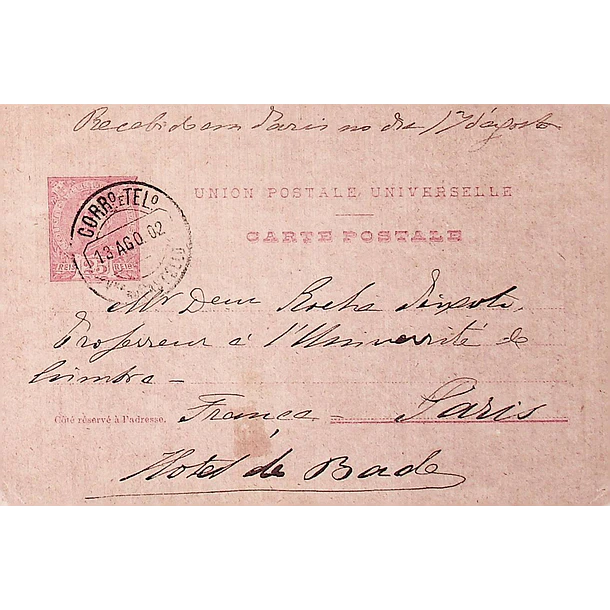 Recebido em Paris no dia 17 d'agosto
UNION POSTALE UNIVERSELLE
CARTE POSTALE
CORRº E TELº
13 AGO. 02
REIS 25 REIS
Mr Dem Rocha
Professeur à l'Université de
Coimbra -
Côté réservé à l'adresse.
França = Paris
Hotel de Bade